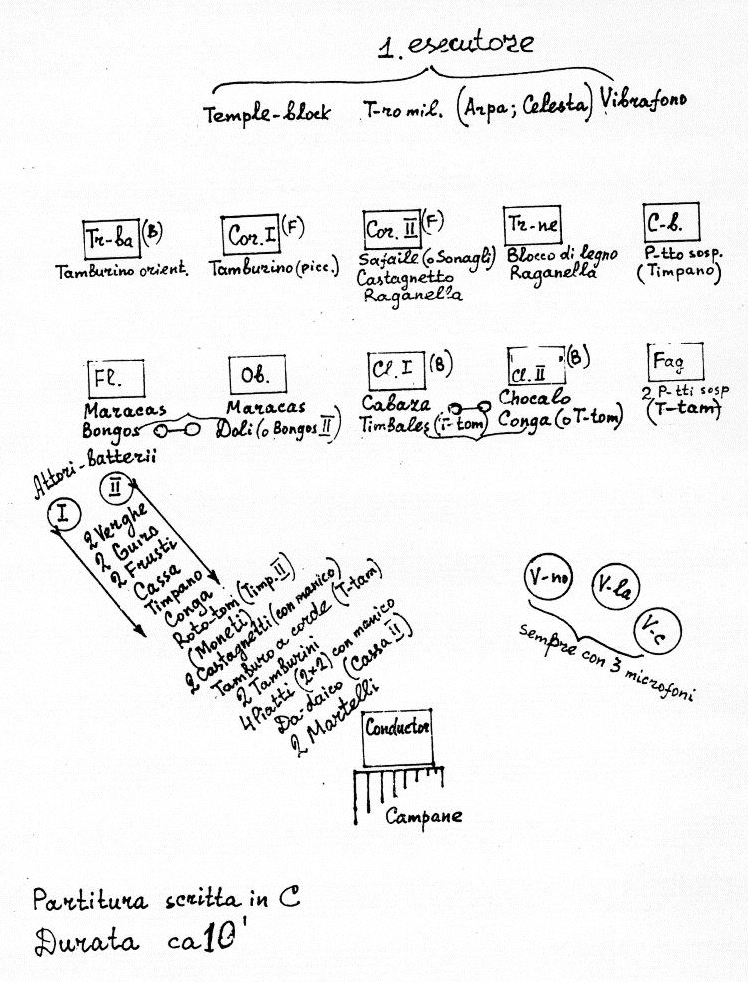 1. esecutore
Temple-block T-ro mil. (Arpa; Celesta) Vibrafono
Tr-ba (B)
Tamburino orient.
Cor. I (F)
Tamburino (picc.)
Cor. II (F)
Safaile (o Sonagli)
Castagnetto
Raganella
Tr-ne
Blocco di legno
Raganella
C-b.
P-tto sosp.
(Timpano)
Fl.
Maracas
Bongos
Ob.
Maracas
Doli (o Bongos II)
Cl. I (B)
Cabaza
Timbales (T-tom)
Cl. II (B)
Chocalo
Conga (o T-tom)
Fag
2 P-tti sosp
(T-tam)
Attori-batterii
I
II
2 Verghe
2 Guiro
2 Frusti
Cassa
Timpano
Conga
Roto-tom (Timp. II)
(Moneti)
2 Castagnetti (con manico)
Tamburo a corde (T-tam)
2 Tamburini
4 Piatti (2×2) con manico
Da-daico (Cassa II)
2 Martelli
V-no
V-la
V-c
sempre con 3 microfoni
Conductor
Campane
Partitura scritta in C
Durata ca 10'